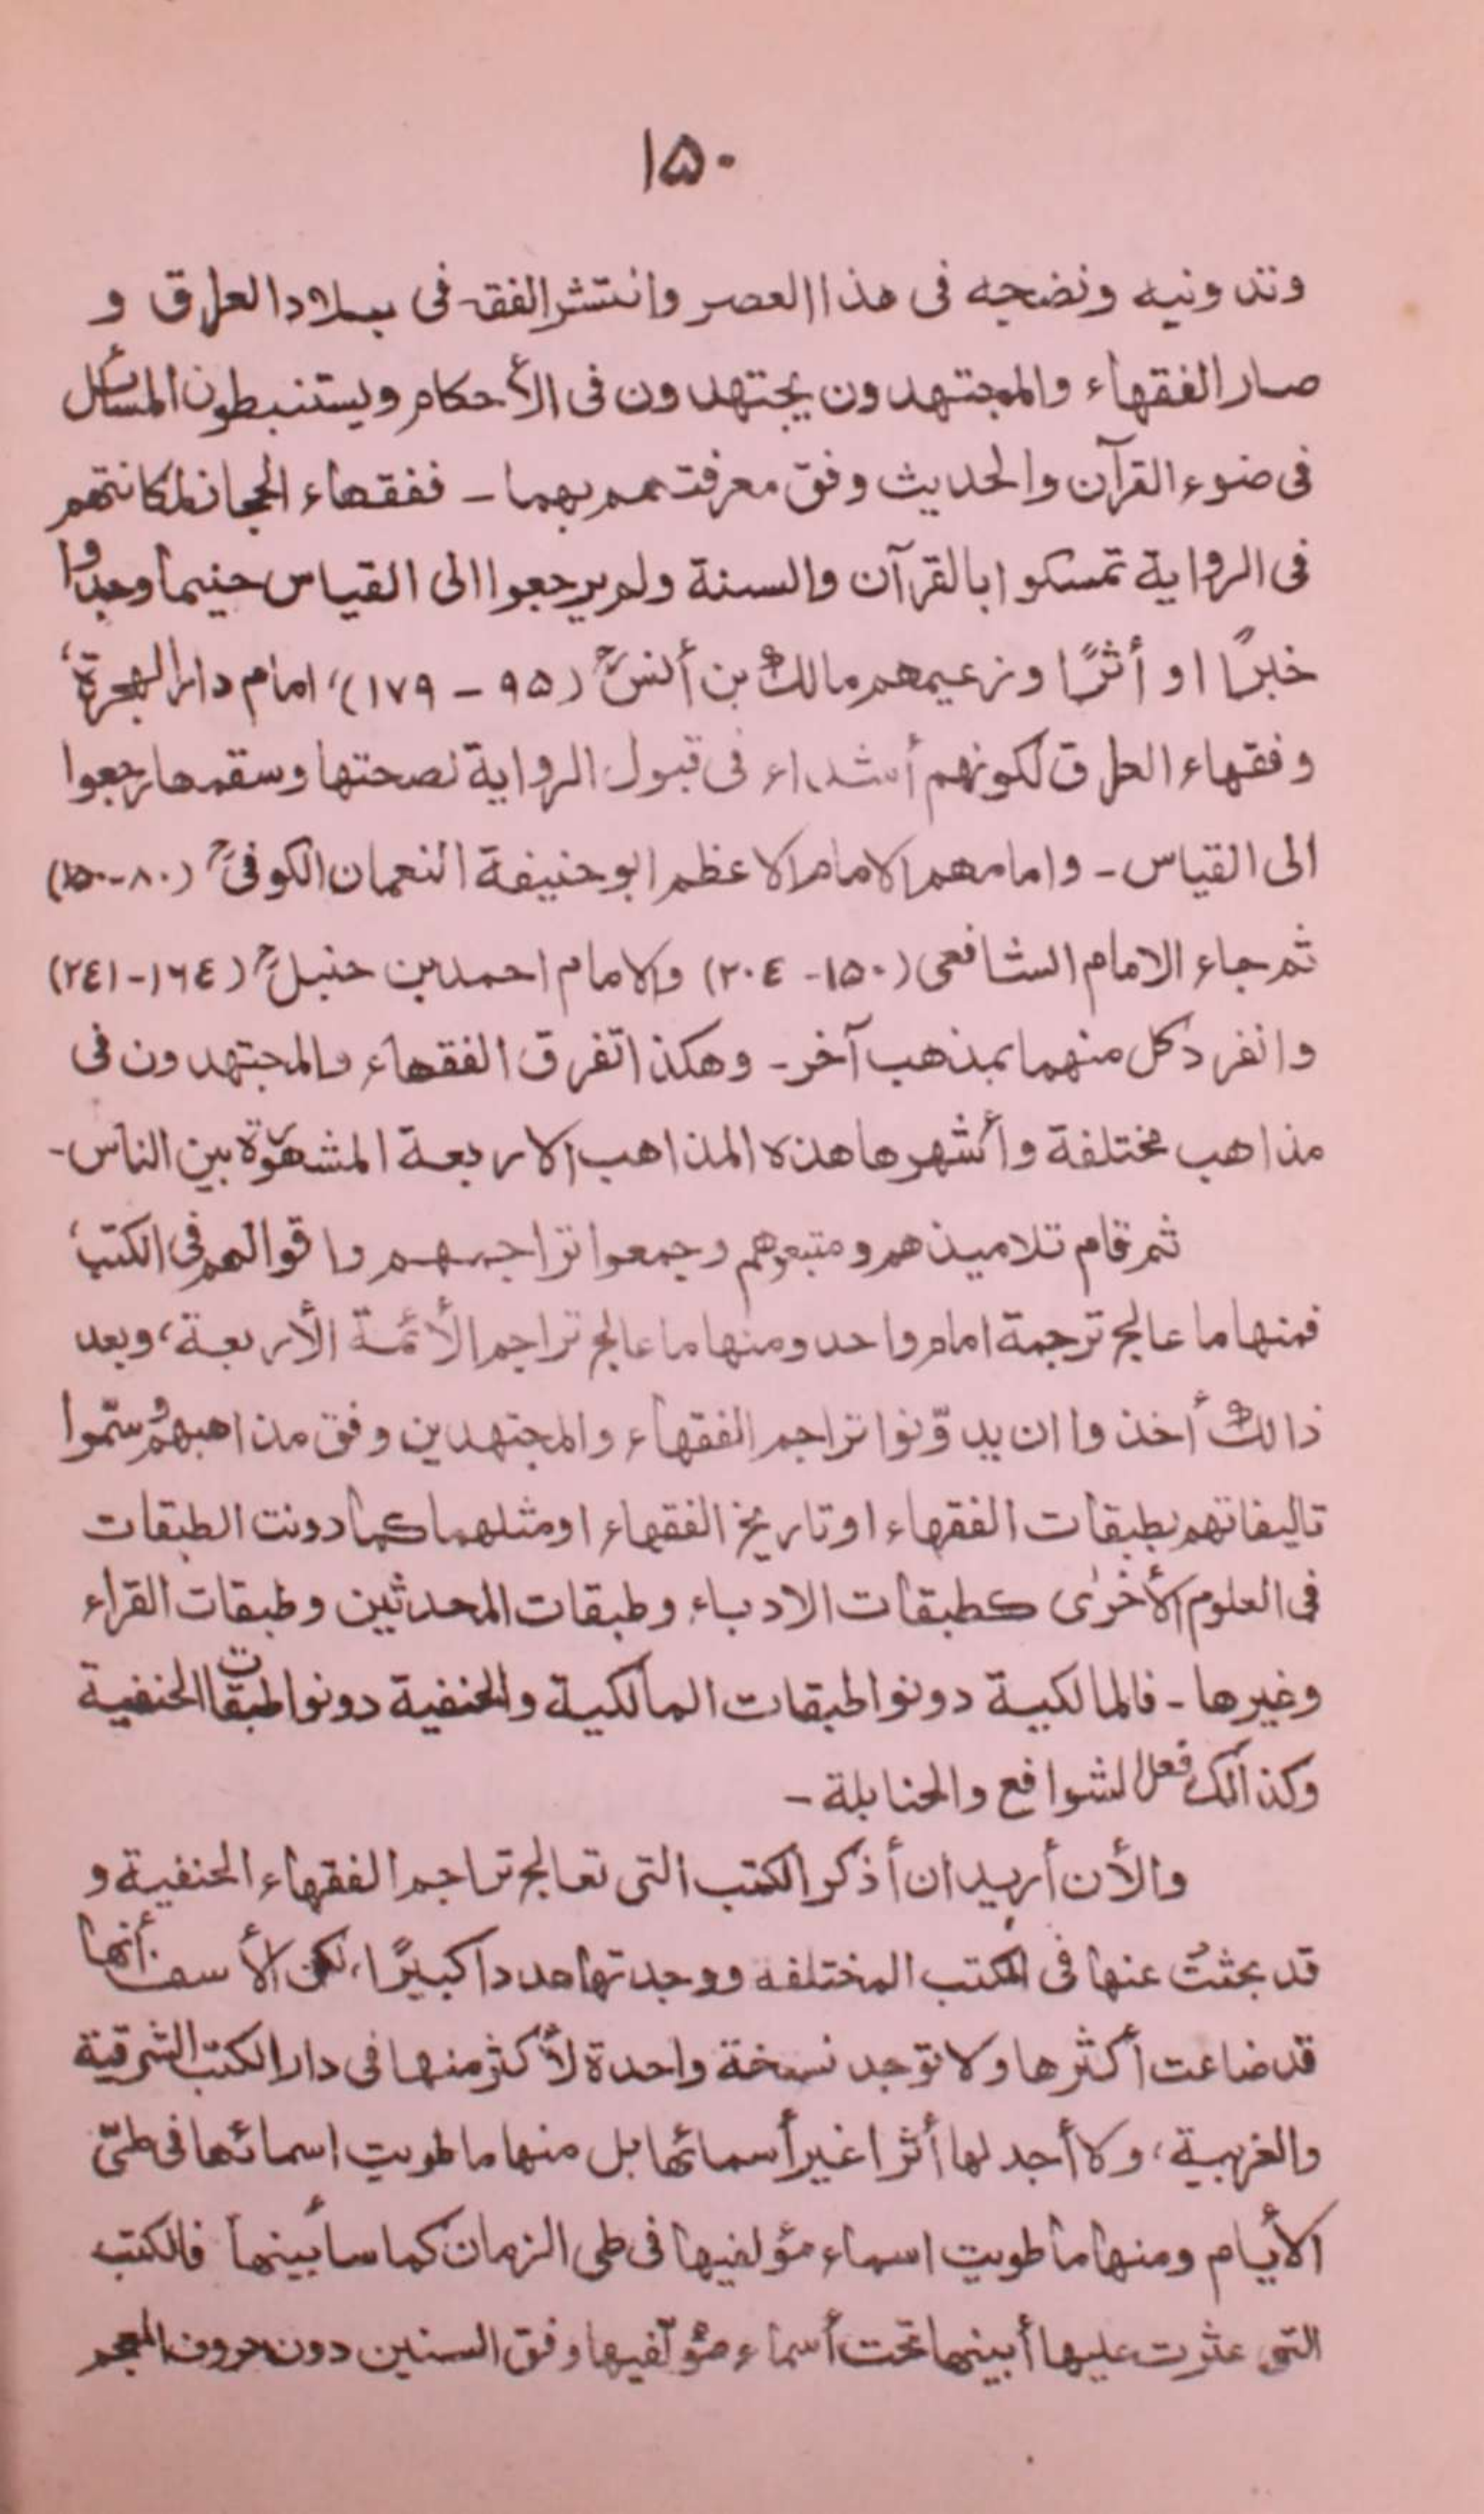 ۱۵۰
وتدونيه ونضجه فى هذا العصر وانتشر الفقه فى بلاد العراق و
صار الفقهاء والمجتهدون يجتهدون فى الأحكام ويستنبطون المسائل
فى ضوء القرآن والحديث وفق معرفتهم بهما - ففقهاء الحجاز لمكانتهم
فى الرواية تمسكوا بالقرآن والسنة ولم يرجعوا الى القياس حينما وجدوا
خبرًا او أثرًا وزعيمهم مالك بن أنسؒ (۹۵ - ۱۷۹)، امام دار الهجرة،
وفقهاء العراق لكونهم أشداء فى قبول الرواية لصحتها وسقمها رجعوا
الى القياس - وامامهم الامام الاعظم ابو حنيفة النعمان الكوفىؒ (۸۰-۱۵۰)
ثم جاء الامام الشافعى (۱۵۰- ۲۰٤) والامام احمد بن حنبلؒ (۱٦٤-۲٤۱)
وانفرد كل منهما بمذهب آخر - وهكذا تفرق الفقهاء والمجتهدون فى
مذاهب مختلفة وأشهرها هذه المذاهب الاربعة المشهورة بين الناس -
ثم قام تلاميذهم ومتبعوهم وجمعوا تراجمهم واقوالهم فى الكتب،
فمنها ما عالج ترجمة امام واحد ومنها ما عالج تراجم الأئمة الأربعة، وبعد
ذالك أخذوا ان يدوّنوا تراجم الفقهاء والمجتهدين وفق مذاهبهم وسمّوا
تاليفاتهم بطبقات الفقهاء او تاريخ الفقهاء او مثلهما كما دونت الطبقات
فى العلوم الأخرى كطبقات الادباء وطبقات المحدثين وطبقات القراء
وغيرها - فالمالكية دونوا طبقات المالكية والحنفية دونوا طبقات الحنفية
وكذالك فعل الشوافع والحنابلة -
والأن أريد ان أذكر الكتب التى تعالج تراجم الفقهاء الحنفية و
قد بحثتُ عنها فى الكتب المختلفه ووجدتها عددا كبيرًا، لكن الأسف أنها
قد ضاعت أكثرها ولا توجد نسخة واحدة لأكثر منها فى دار الكتب الشرقية
والغربية، ولا أجد لها أثرا غير أسمائها بل منها ما طويت اسمائها فى طىّ
الأيام ومنها ما طويت اسماء مؤلفيها فى طى الزمان كما سأبينها فالكتب
التى عثرت عليها أبينها تحت أسماء مؤلّفيها وفق السنين دون حروف المعجم